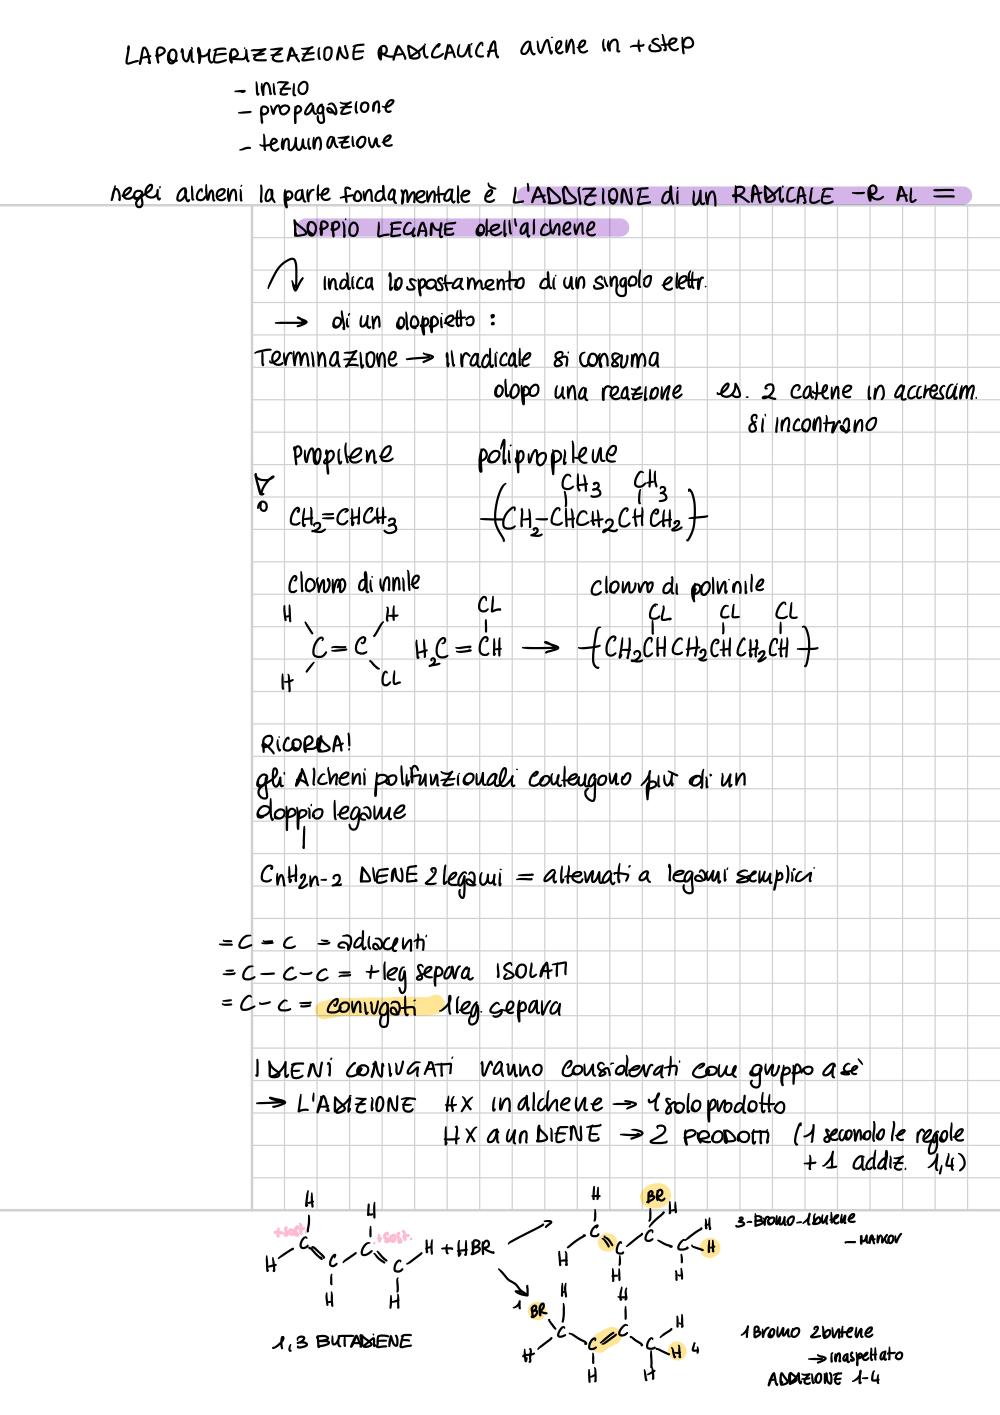 LA POLIMERIZZAZIONE RADICALICA aviene in + step
- INIZIO
- propagazione
- terminazione
negli alcheni la parte fondamentale è L'ADDIZIONE di un RADICALE -R AL =
DOPPIO LEGAME dell'alchene
indica lo spostamento di un singolo elettr.
→ di un doppietto :
Terminazione → il radicale si consuma
dopo una reazione es. 2 catene in accrescim.
si incontrano
Propilene polipropilene
CH3 CH3
CH2=CHCH3 (CH2-CHCH2CHCH2)
Cloruro di vinile Cloruro di polivinile
H H CL CL CL CL
C=C H2C=CH → (CH2CHCH2CHCH2CH)
H CL
RICORDA!
gli Alcheni polifunzionali contengono più di un
doppio legame
CnH2n-2 DIENE 2 legami = alternati a legami semplici
=C-C =adiacenti
=C-C-C= +leg separa ISOLATI
=C-C= coniugati 1 leg. separa
I DIENI CONIUGATI vanno considerati come gruppo a sè
→ L'ADIZIONE HX in alchene → 1 solo prodotto
HX a un DIENE → 2 PRODOTTI (1 secondo le regole
+1 addiz. 1,4)
H H H BR H
+sost. +sost. H 3-Bromo-1butene
C C H +HBR C C H - MARKOV
H C C H C C
H H H H
1 BR H H
C C H 1 Bromo 2butene
1,3 BUTADIENE H C C H 4 → inaspettato
H H ADDIZIONE 1-4